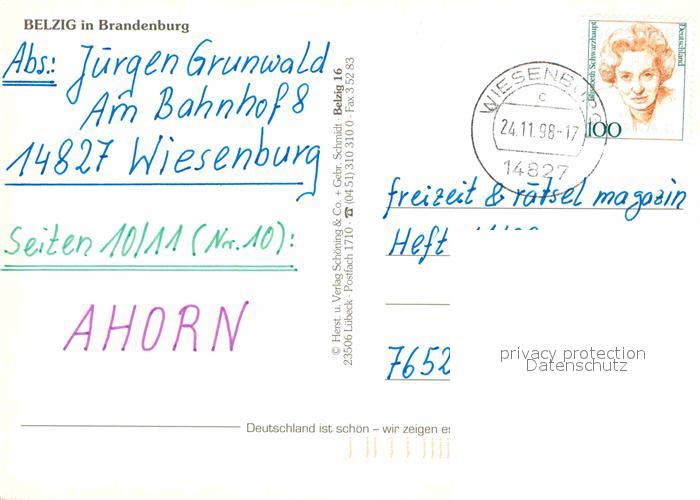 BELZIG in Brandenburg
Abs.: Jürgen Grunwald
Am Bahnhof 8
14827 Wiesenburg
Seiten 10/11 (Nr. 10):
AHORN
© Herst. u. Verlag Schöning & Co. + Gebr. Schmidt · Belzig 16
23506 Lübeck · Postfach 1710 · ☎ (04 51) 310 310 0 · Fax 3 52 83
Elisabeth Schwarzhaupt
Deutschland
100
WIESENBURG
c
24.11.98-17
14827
freizeit & rätsel magazin
Heft
7652
privacy protection
Datenschutz
Deutschland ist schön – wir zeigen es